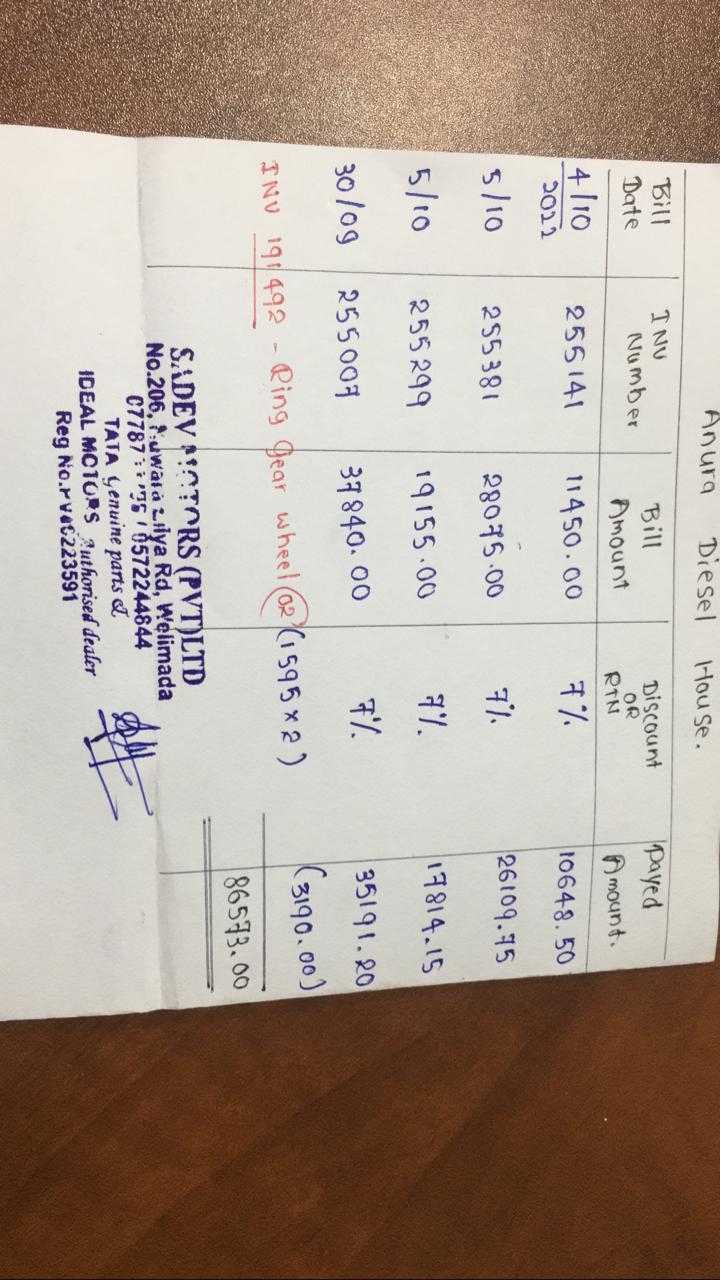 Anura Diesel House.
Bill Date INV Number Bill Amount Discount OR RTN Payed Amount.
4/10 2022 255141 11450.00 7% 10648.50
5/10 255381 28075.00 7% 26109.75
5/10 255299 19155.00 7% 17814.15
30/09 255007 37840.00 7% 35191.20
INV 191492 - Ring Gear wheel 02 (1595 x 2) (3190.00)
86573.00
SADEV MOTORS (PVT) LTD
No.206, Nuwara Eliya Rd, Welimada
0572244844
TATA Genuine parts &
IDEAL MOTORS Authorised dealer
Reg No.